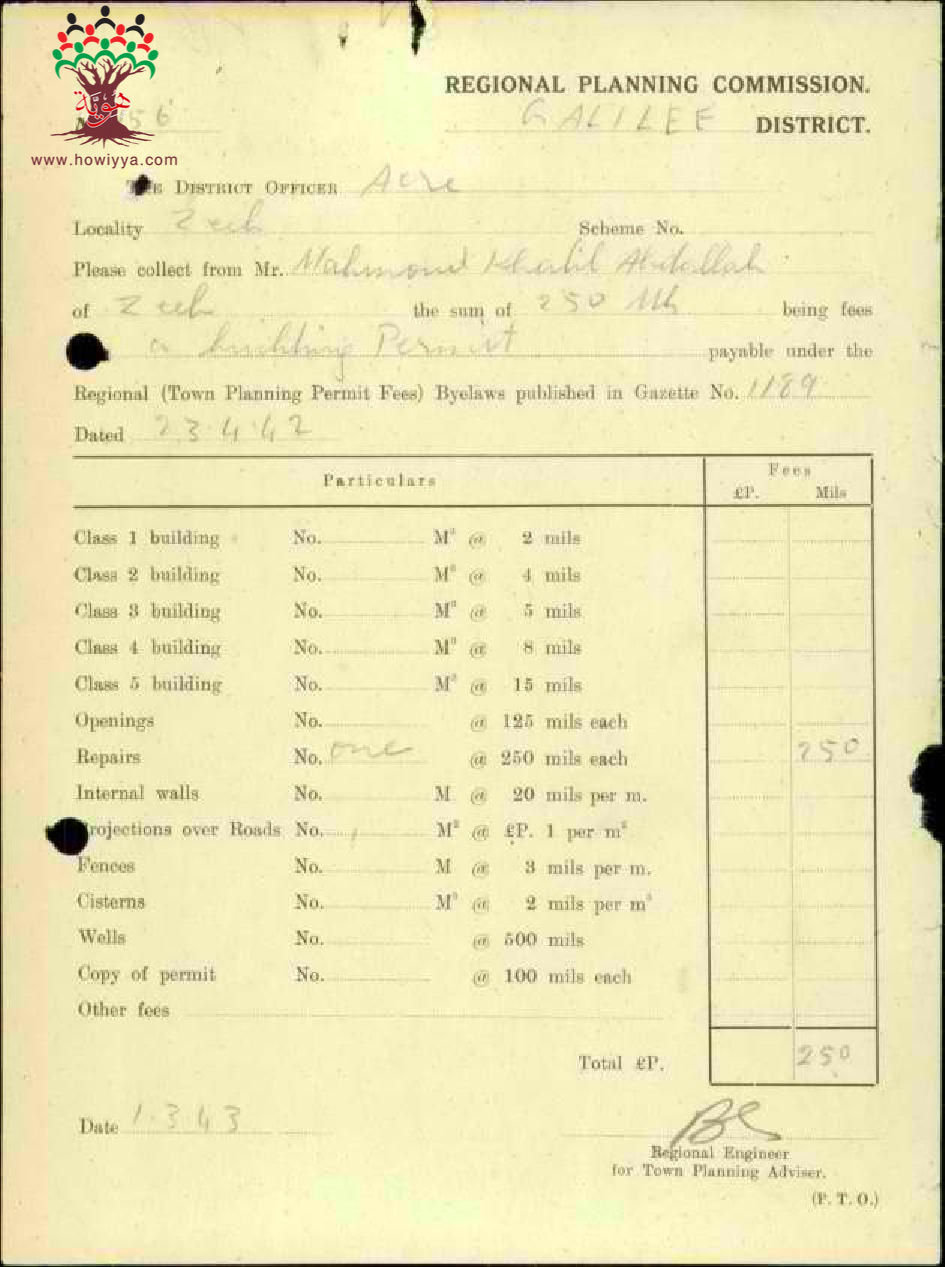 هوية
www.howiyya.com
REGIONAL PLANNING COMMISSION.
56
GALILEE DISTRICT.
DISTRICT OFFICER Acre
Locality Zeeb Scheme No.
Please collect from Mr. Mahmoud Khalil Abdallah
of Zeeb the sum of 250 Mls being fees
a building Permit payable under the
Regional (Town Planning Permit Fees) Byelaws published in Gazette No. 1189
Dated 23.4.42
Particulars Fees
£P. Mils
Class 1 building No. M² @ 2 mils
Class 2 building No. M² @ 4 mils
Class 3 building No. M² @ 5 mils
Class 4 building No. M² @ 8 mils
Class 5 building No. M² @ 15 mils
Openings No. @ 125 mils each
Repairs No. one @ 250 mils each 250
Internal walls No. M @ 20 mils per m.
rojections over Roads No. M² @ £P. 1 per m²
Fences No. M @ 3 mils per m.
Cisterns No. M³ @ 2 mils per m³
Wells No. @ 500 mils
Copy of permit No. @ 100 mils each
Other fees
Total £P. 250
Date 1.3.43
Regional Engineer
for Town Planning Adviser.
(P. T. O.)